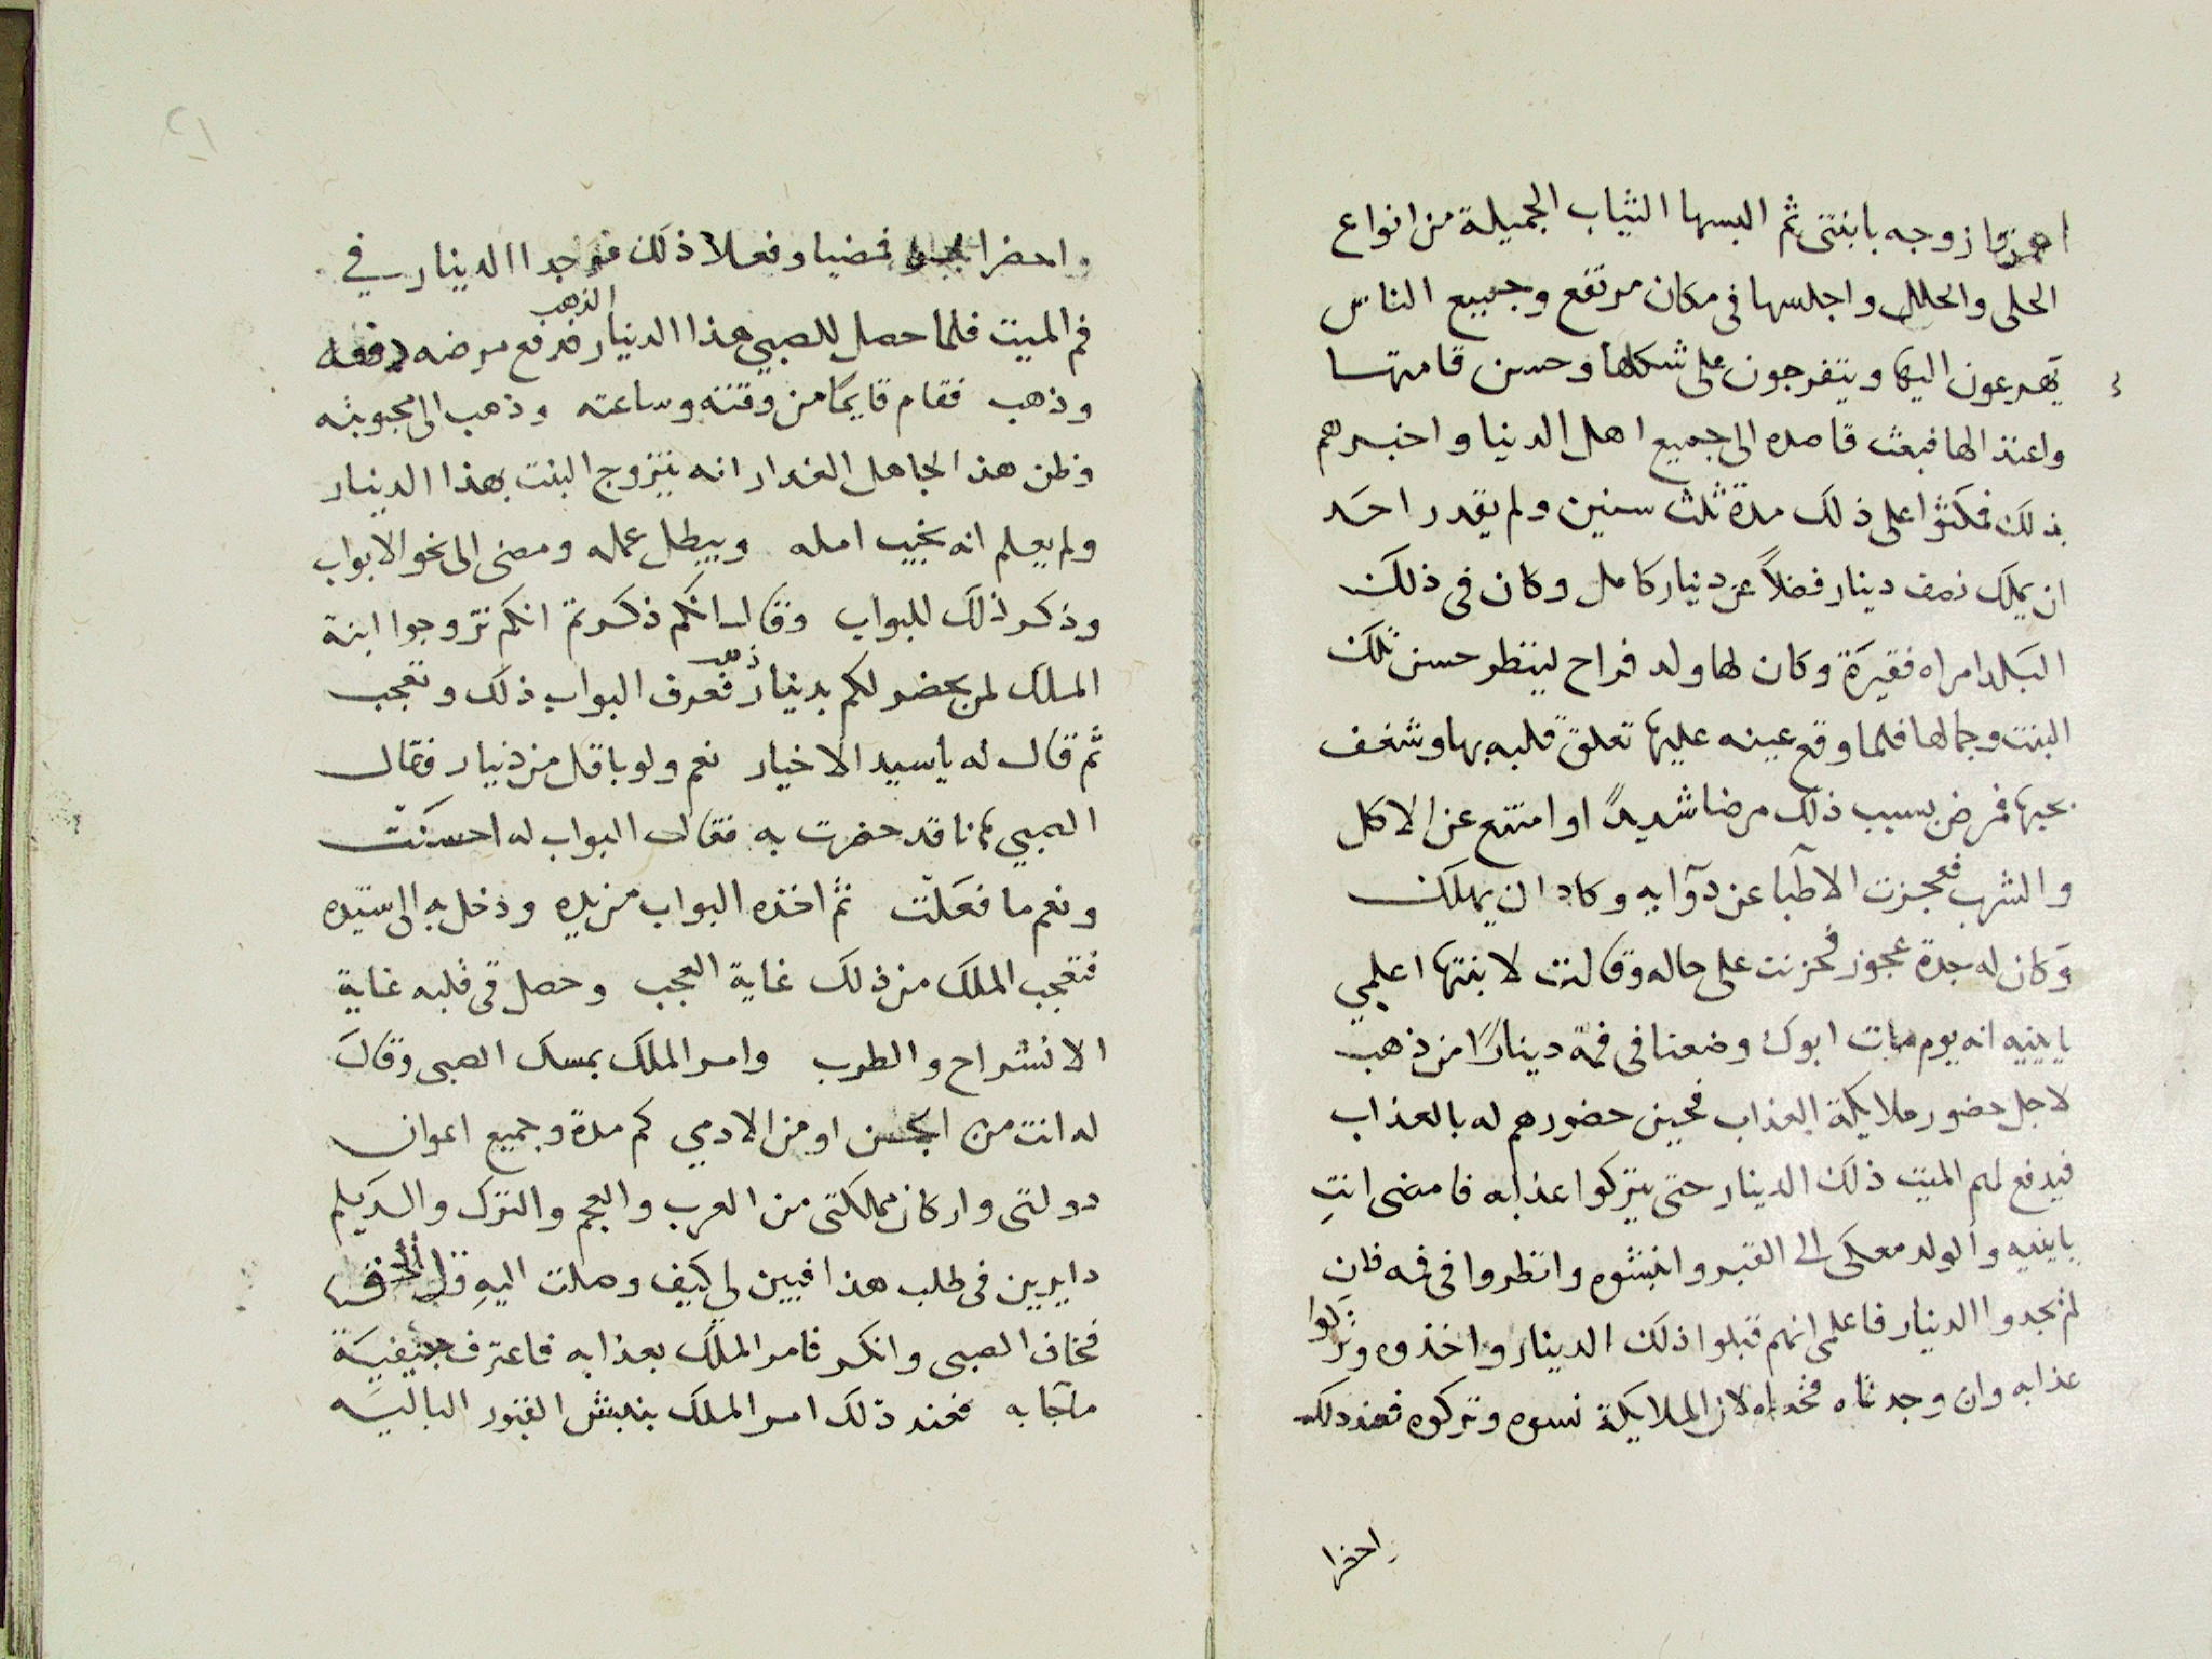 ازوجه بابنتى ثم البسها الثياب الجميلة من انواع
الحلى والحلل واجلسها فى مكان مرتفع وجميع الناس
يهرعون اليها ويتفرجون على شكلها وحسن قامتها
واعتدالها فبعث قاصده الى جميع اهل الدنيا واخبرهم
بذلك فمكثوا على ذلك مدة ثلث سنين ولم يقدر احد
ان يملك نصف دينار فضلاً عن دينار كامل وكان فى ذلك
البلد امراه فقيرة وكان لها ولد فراح لينظر حسن تلك
البنت وجمالها فلما وقع عينه عليها تعلق قلبه بها وشغف
بحبها فمرض بسبب ذلك مرضا شديدًا وامتنع عن الاكل
والشرب فعجزت الاطبا عن دوآيه وكاد ان يهلك
وكان له جدة عجوز فحزنت على حاله وقالت لابنتها اعلمي
يابنيه انه يوم مات ابوك وضعنا فى فمه دينارًا من ذهب
لاجل حضور ملايكة العذاب فحين حضورهم له بالعذاب
فيدفع لهم الميت ذلك الدينار حتى يتركوا عذابه فامضى انتِ
يابنيه والولد معكى الى القبر وانبشوه وانظروا فى فمه فان
لم تجدوا الدينار فاعلمى انهم قبلوا ذلك الدينار واخذوه وتركوا
عذابه وان وجدتاه فخداه لان الملايكة نسوه وتركوه فعند ذلك
واحضرا
واحضرا فمضيا وفعلا ذلك فوجدا الدينار في
فم الميت فلما حصل للصبي هذا الدينار الذهب فدفع مرضه
وذهب فقام قايمًا من وقته وساعته وذهب الى محبوبته
وظن هذا الجاهل الغدار انه يتزوج البنت بهذا الدينار
ولم يعلم انه يخيب امله ويبطل عمله ومضى الى نحو الابواب
وذكر ذلك للبواب وقال انكم ذكرتم انكم تزوجوا ابنة
الملك لمن يحضر لكم بدينار ذهب فعرف البواب ذلك وتعجب
ثم قال له ياسيد الاخيار نعم ولو باقل من دينار فقال
الصبي فانا قد حضرت به فقال البواب له احسنت
ونعم ما فعلت ثم اخذه البواب من يده ودخل به الى سيده
فتعجب الملك من ذلك غاية العجب وحصل فى قلبه غاية
الانشراح والطرب وامر الملك بمسك الصبى وقال
له انت من الجن او من الادمي كم مدة وجميع اعوان
دولتى واركان مملكتى من العرب والعجم والترك والديلم
دايرين فى طلب هذا فبين لي كيف وصلت اليه قل الحق
فخاف الصبى وانكر فامر الملك بعذابه فاعترف
ماجابه فعند ذلك امر الملك بنبش القبور الباليه